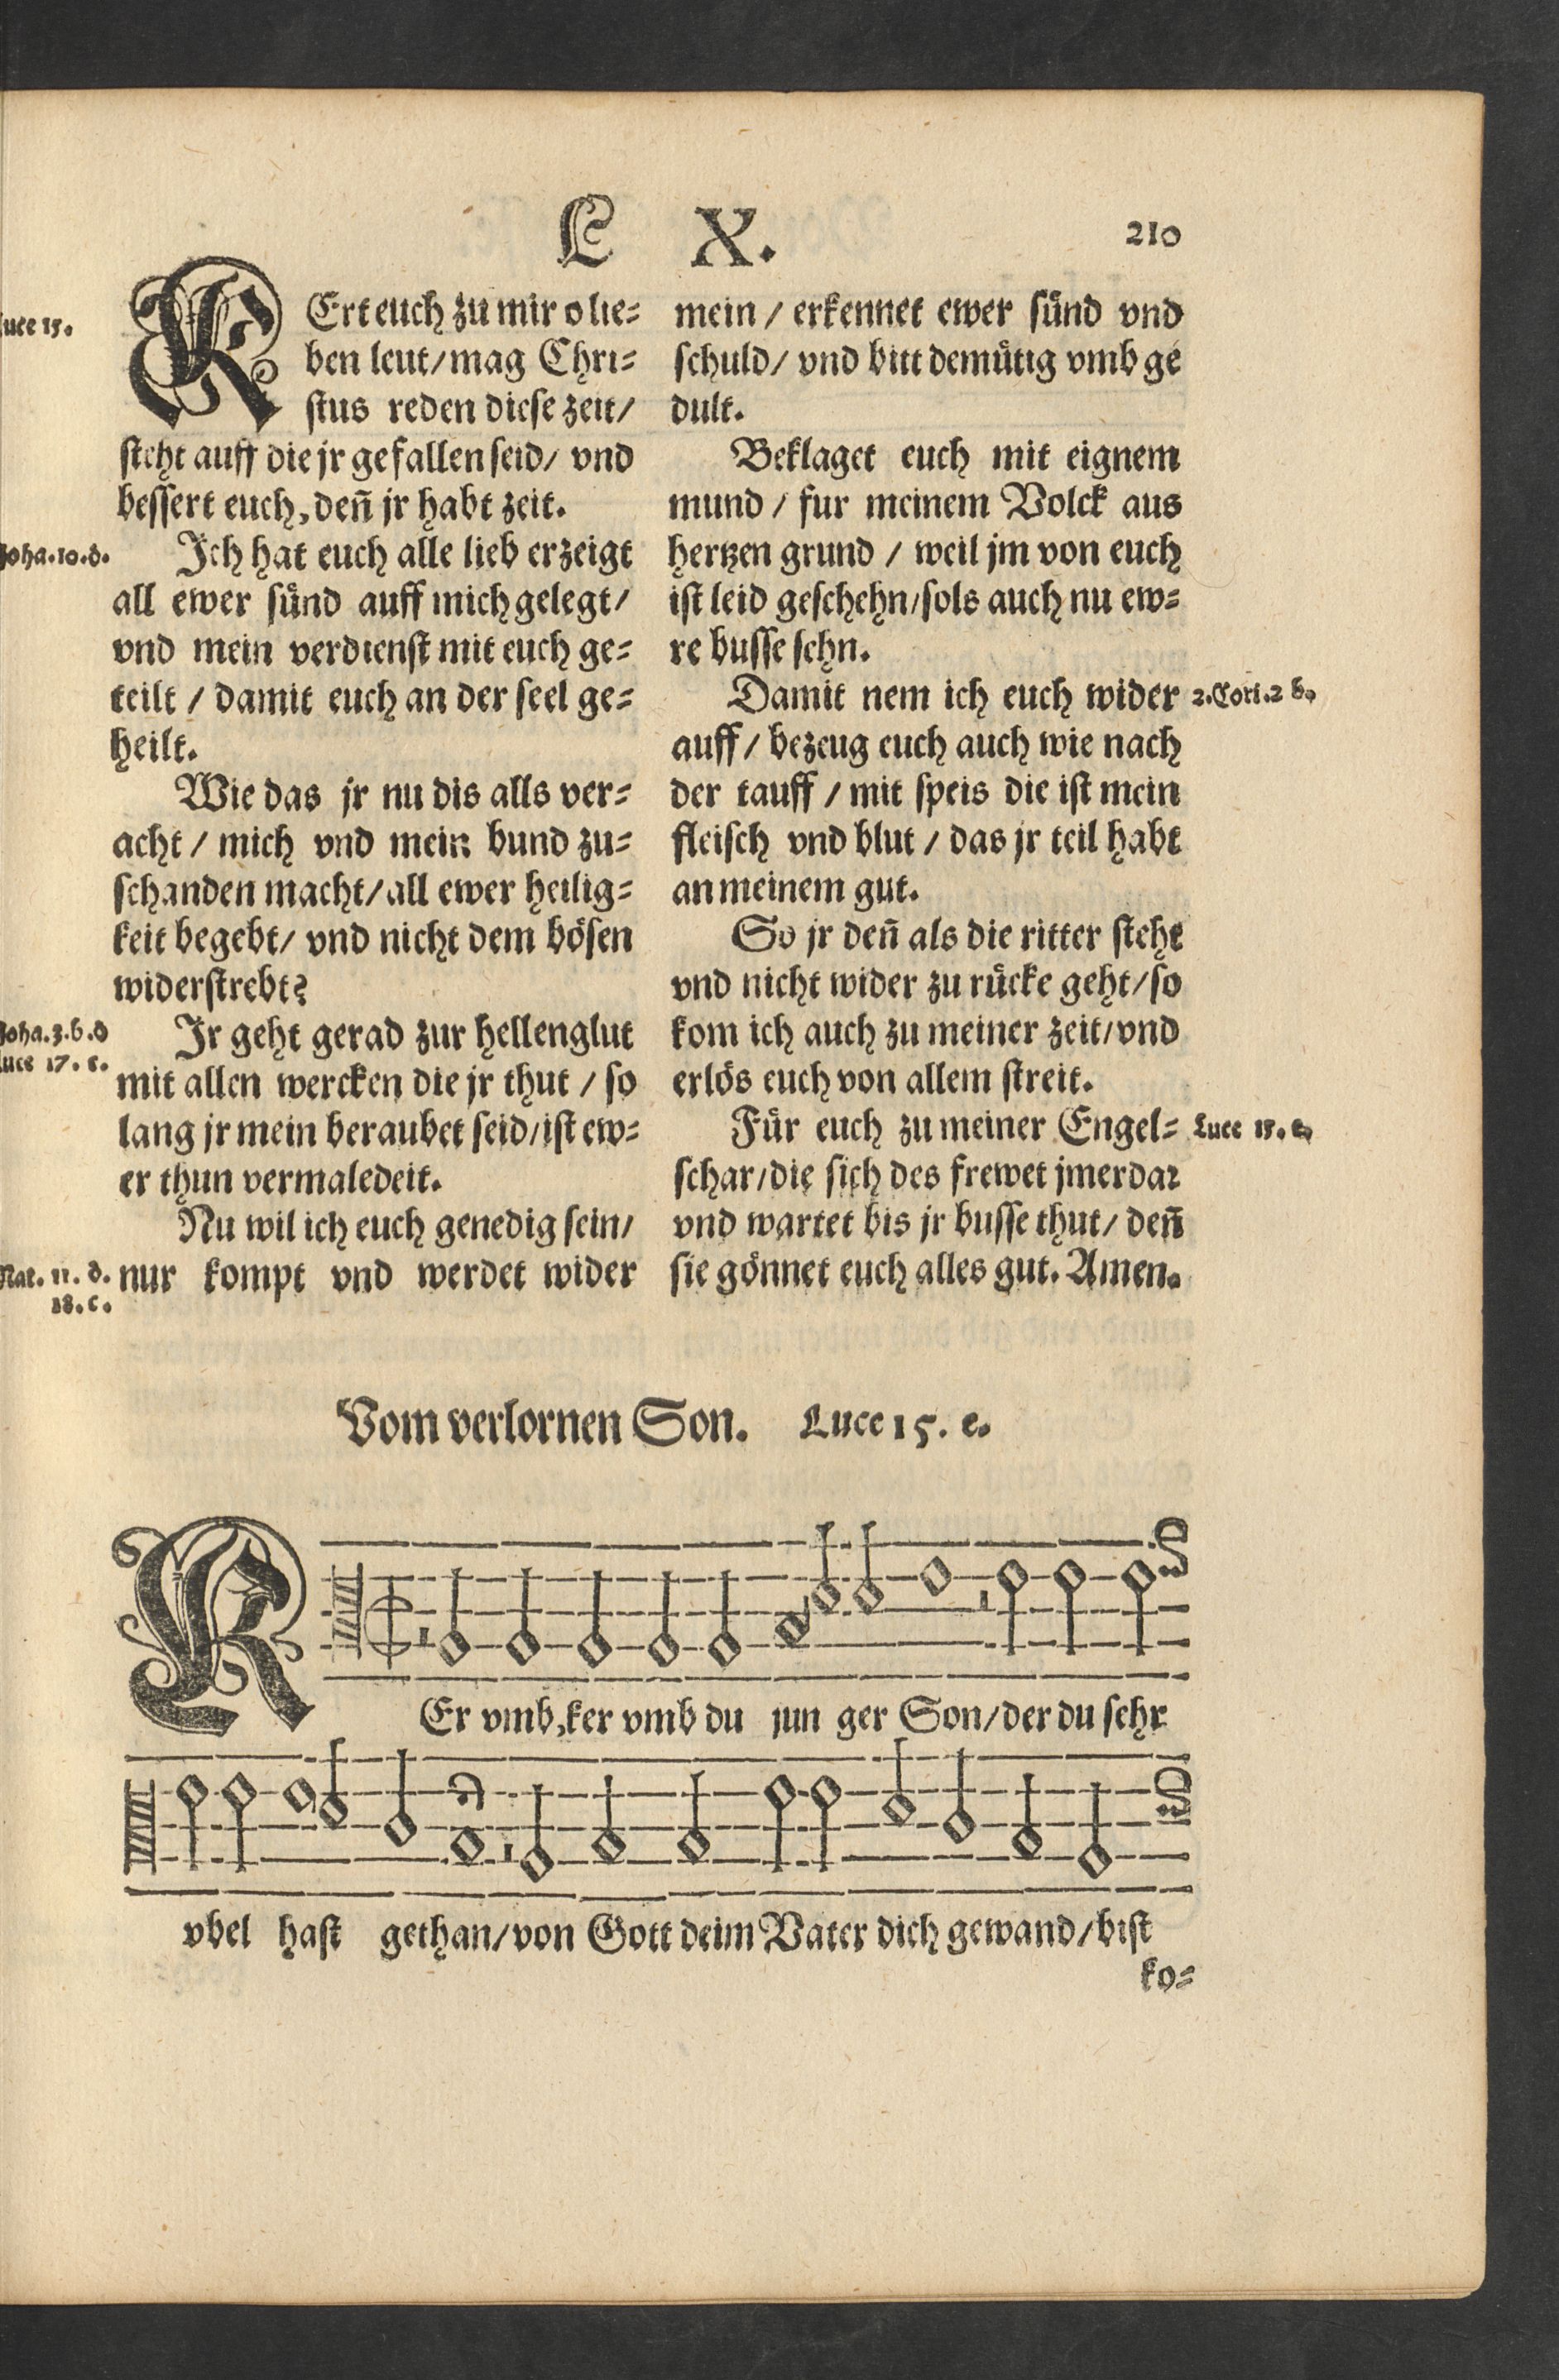 L X. 210
KErt euch zu mir o lie=
ben leut/mag Chri=
stus reden diese zeit/
steht auff die jr gefallen seid/ vnd
bessert euch, deñ jr habt zeit.
Ich hat euch alle lieb erzeigt
all ewer sünd auff mich gelegt/
vnd mein verdienst mit euch ge=
teilt / damit euch an der seel ge=
heilt.
Wie das jr nu dis alls ver=
acht / mich vnd mein bund zu=
schanden macht/all ewer heilig=
keit begebt/ vnd nicht dem bösen
widerstrebt?
Ir geht gerad zur hellenglut
mit allen wercken die jr thut / so
lang jr mein beraubet seid/ist ew=
er thun vermaledeit.
Nu wil ich euch genedig sein/
nur kompt vnd werdet wider
Luce 15.
Joha.10.d.
Joha.3.b.d
Luce 17. c.
Mat. 11. d.
18. c.
mein / erkennet ewer sünd vnd
schuld/ vnd bitt demütig vmb ge
dult.
Beklaget euch mit eignem
mund / fur meinem Volck aus
hertzen grund / weil jm von euch
ist leid geschehn/sols auch nu ew=
re busse sehn.
Damit nem ich euch wider
auff / bezeug euch auch wie nach
der tauff / mit speis die ist mein
fleisch vnd blut / das jr teil habt
an meinem gut.
So jr deñ als die ritter steht
vnd nicht wider zu rücke geht/so
kom ich auch zu meiner zeit/vnd
erlös euch von allem streit.
Für euch zu meiner Engel=
schar/die sich des frewet jmerdar
vnd wartet bis jr busse thut/ deñ
sie gönnet euch alles gut. Amen.
2.Cori.2 b.
Luce 15. e.
Vom verlornen Son. Luce 15. e.
KEr vmb,ker vmb du jun ger Son/der du sehr
vbel hast gethan/von Gott deim Vater dich gewand/bist
ko=